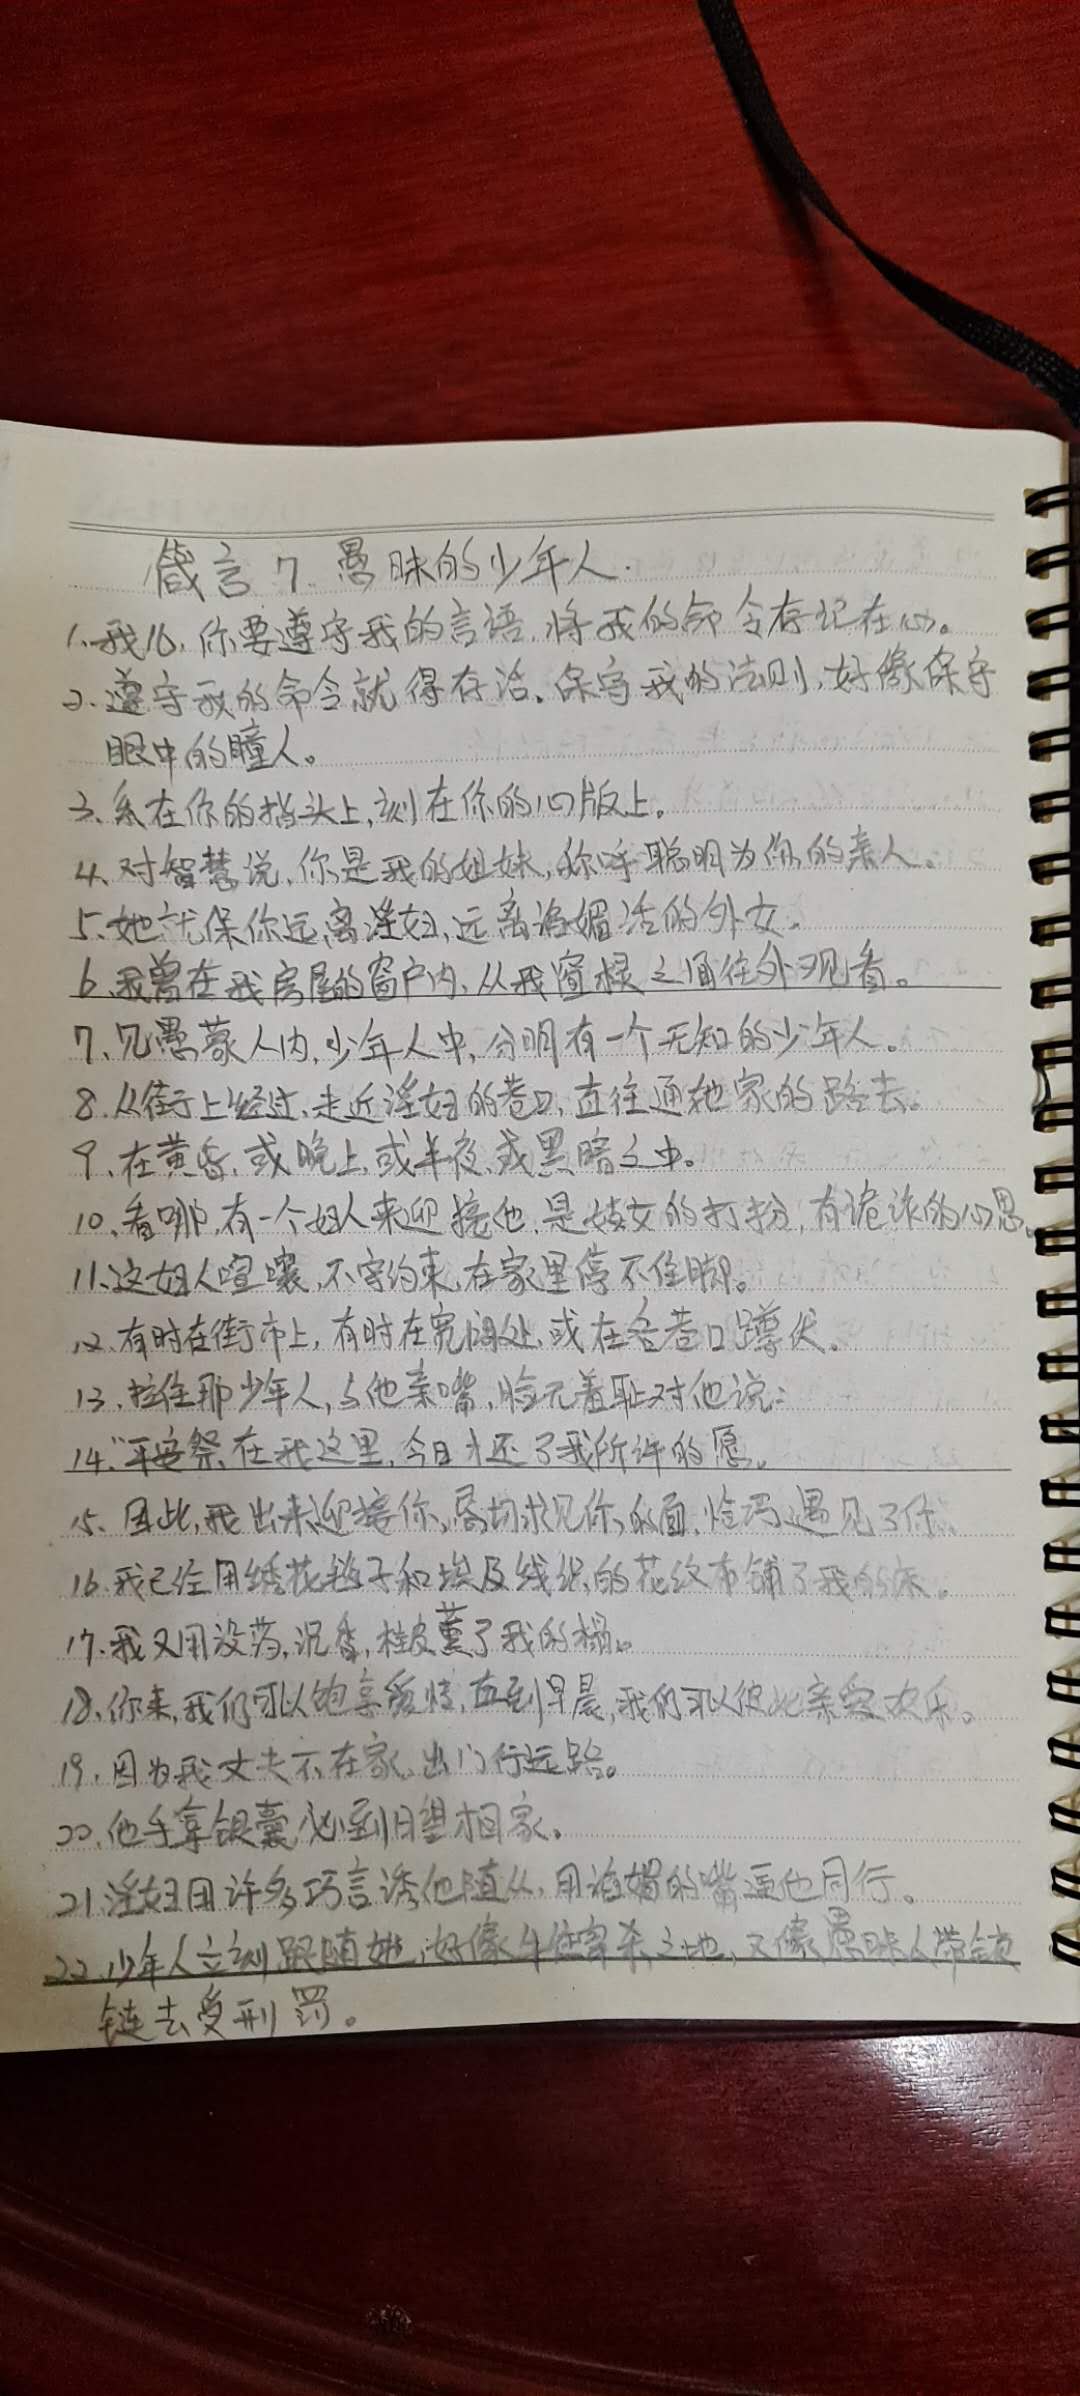 箴言 7. 愚昧的少年人.
1.我儿,你要遵守我的言语,将我的命令存记在心。
2.遵守我的命令就得存活.保守我的法则,好像保守
眼中的瞳人。
3.系在你的指头上,刻在你的心版上。
4.对智慧说,你是我的姐妹,称呼聪明为你的亲人。
5.她就保你远离淫妇,远离谄媚话的外女。
6.我曾在我房屋的窗户内,从我窗棂之间往外观看。
7.见愚蒙人内,少年人中,分明有一个无知的少年人。
8.从街上经过,走近淫妇的巷口,直往通她家的路去。
9.在黄昏,或晚上,或半夜,或黑暗之中。
10.看哪,有一个妇人来迎接他,是妓女的打扮,有诡诈的心思。
11.这妇人喧嚷,不守约束,在家里停不住脚。
12.有时在街市上,有时在宽阔处,或在各巷口蹲伏。
13.拉住那少年人,与他亲嘴,脸无羞耻对他说:
14.“平安祭在我这里,今日才还了我所许的愿。
15.因此,我出来迎接你,恳切求见你的面,恰巧遇见了你。
16.我已经用绣花毯子和埃及线织的花纹布铺了我的床。
17.我又用没药,沉香,桂皮薰了我的榻。
18.你来,我们可以饱享爱情,直到早晨,我们可以彼此亲爱欢乐。
19.因为我丈夫不在家,出门行远路。
20.他手拿银囊必到月望才回家。
21.淫妇用许多巧言诱他随从,用谄媚的嘴逼他同行。
22.少年人立刻跟随她,好像牛往宰杀之地,又像愚昧人带锁
链去受刑罚。